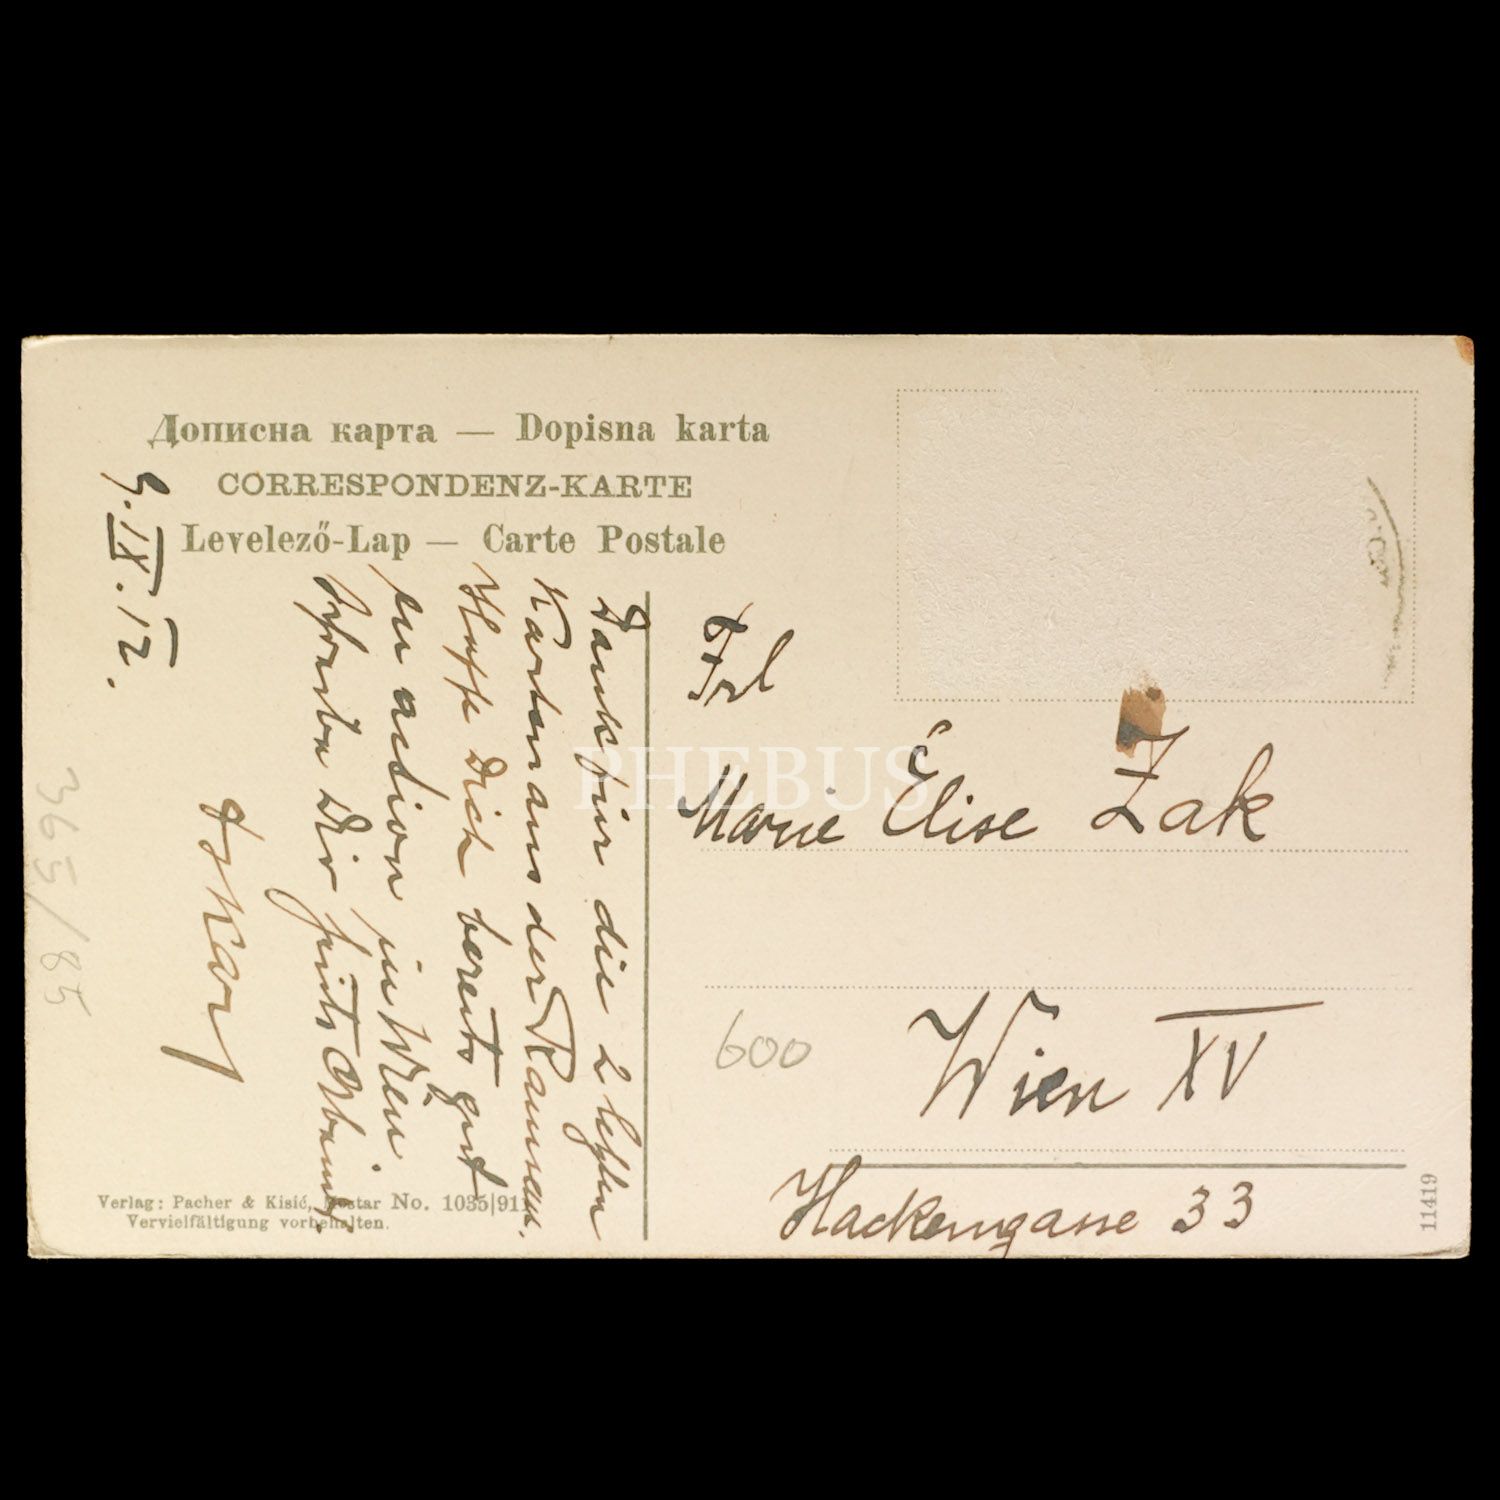 Дописна карта — Dopisna karta
CORRESPONDENZ-KARTE
Levelező-Lap — Carte Postale
9.IX.12.
Dank für die 2 letzten
Karten aus der Ramsau.
Hoffe Dich bereits gut
en action in Wien
Dir
Frl
Marie Élise Zak
Wien XV
Hackengasse 33
600
365/85
Verlag: Pacher & Kisić, Mostar No. 1035|911
Vervielfältigung vorbehalten.
11419
PHEBUS